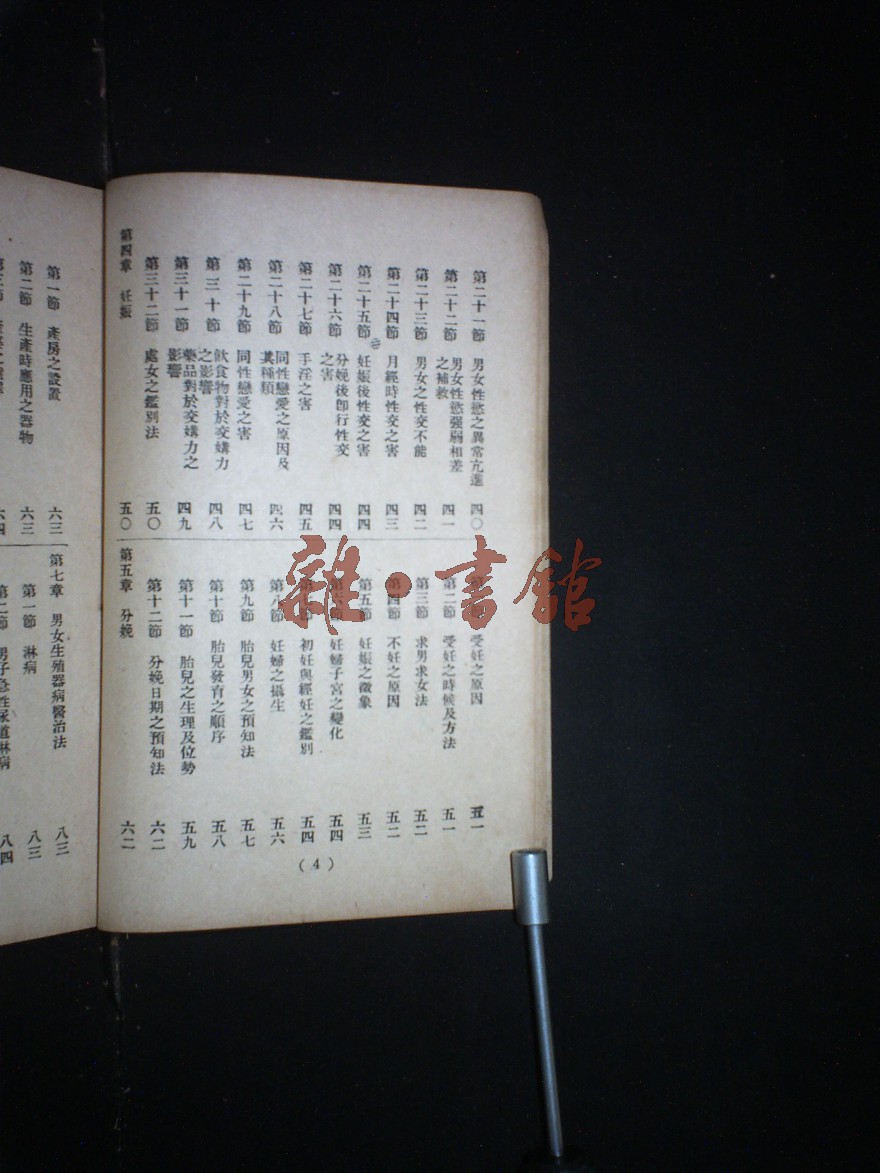 第二十一節 男女性慾之異常亢進 四〇
第二十二節 男女性慾强弱相差之補救 四一
第二十三節 男女之性交不能 四二
第二十四節 月經時性交之害 四三
第二十五節 妊娠後性交之害 四四
第二十六節 分娩後卽行性交之害 四四
第二十七節 手淫之害 四五
第二十八節 同性戀愛之原因及其種類 四六
第二十九節 同性戀愛之害 四七
第三十節 飲食物對於交媾力之影響 四八
第三十一節 藥品對於交媾力之影響 四九
第三十二節 處女之鑑別法 五〇
第四章 妊娠 五〇
受妊之原因 五一
第二節 受妊之時候及方法 五一
第三節 求男求女法 五二
第四節 不妊之原因 五二
第五節 妊娠之徵象 五三
第六節 妊婦子宮之變化 五四
初妊與經妊之鑑別 五四
第八節 妊婦之攝生 五六
第九節 胎兒男女之預知法 五七
第十節 胎兒發育之順序 五八
第十一節 胎兒之生理及位勢 五九
第十二節 分娩日期之預知法 六二
第五章 分娩 六二
(4)
第一節 產房之設置 六三
第二節 生產時應用之器物 六三
六四
第七章 男女生殖器病醫治法 八三
第一節 淋病 八三
第二節 男子急性尿道淋病 八四
雜·書館